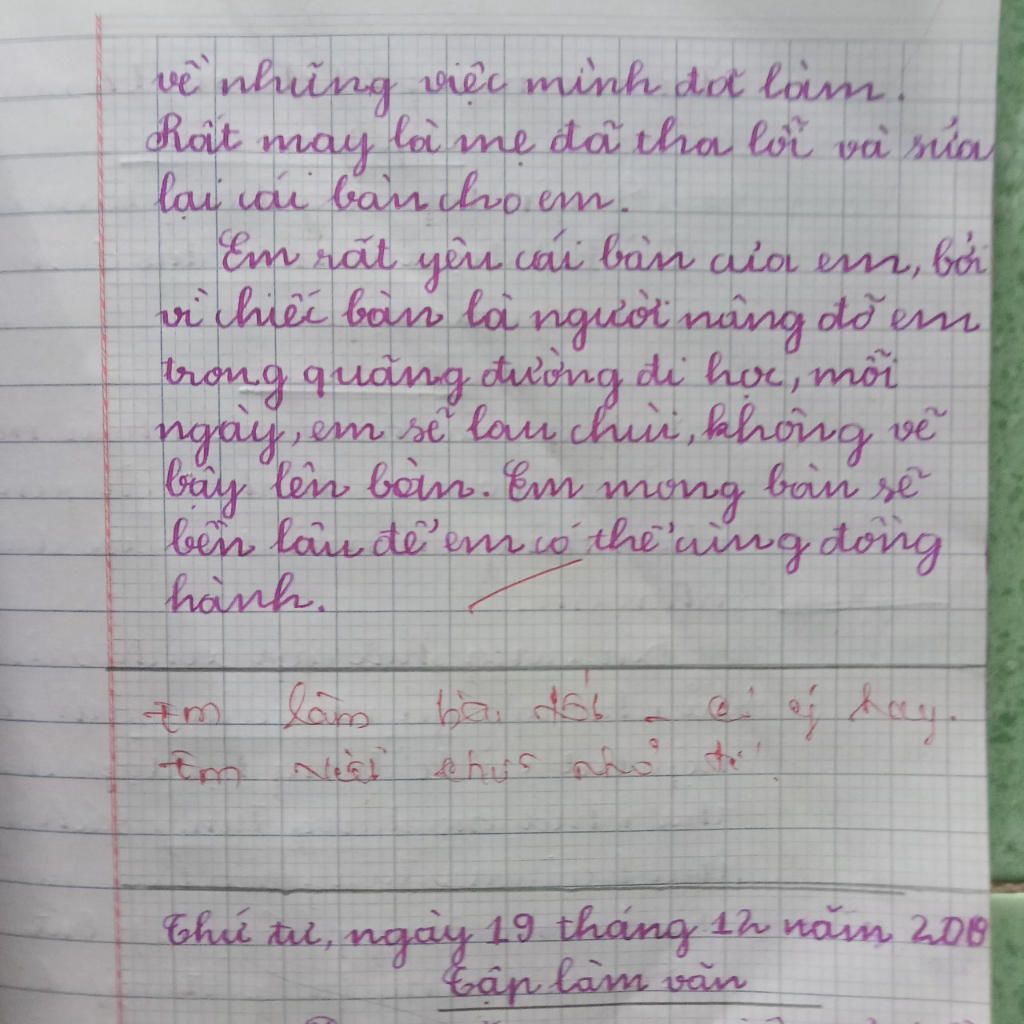 về những việc mình đã làm.
Rất may là mẹ đã tha lỗi và sửa
lại cái bàn cho em.
Em rất yêu cái bàn của em, bởi
vì chiếc bàn là người nâng đỡ em
trong quãng đường đi học, mỗi
ngày, em sẽ lau chùi, không vẽ
bậy lên bàn. Em mong bàn sẽ
bền lâu để em có thể cùng đồng
hành.
Em làm bài tốt - có ý hay.
Em viết chữ nhỏ
Thứ tư, ngày 19 tháng 12 năm
Tập làm văn